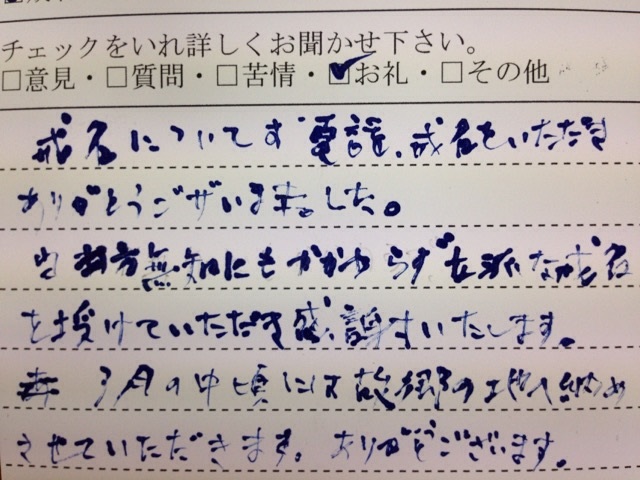 チェックをいれ詳しくお聞かせ下さい。
□意見・□質問・□苦情・☑お礼・□その他
戒名についてす 戒名をいただき
ありがとうございました。
当方無知にもかかわらず立派な戒名
を授けていただき感謝いたします。
3月の中頃には故郷の地へ納め
させていただきます。ありがとうございます。